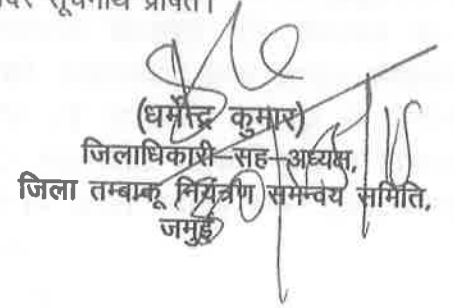 सूचनार्थ प्रेषित।
(धर्मेन्द्र कुमार)
जिलाधिकारी–सह–अध्यक्ष,
जिला तम्बाकू नियंत्रण समन्वय समिति,
जमुई